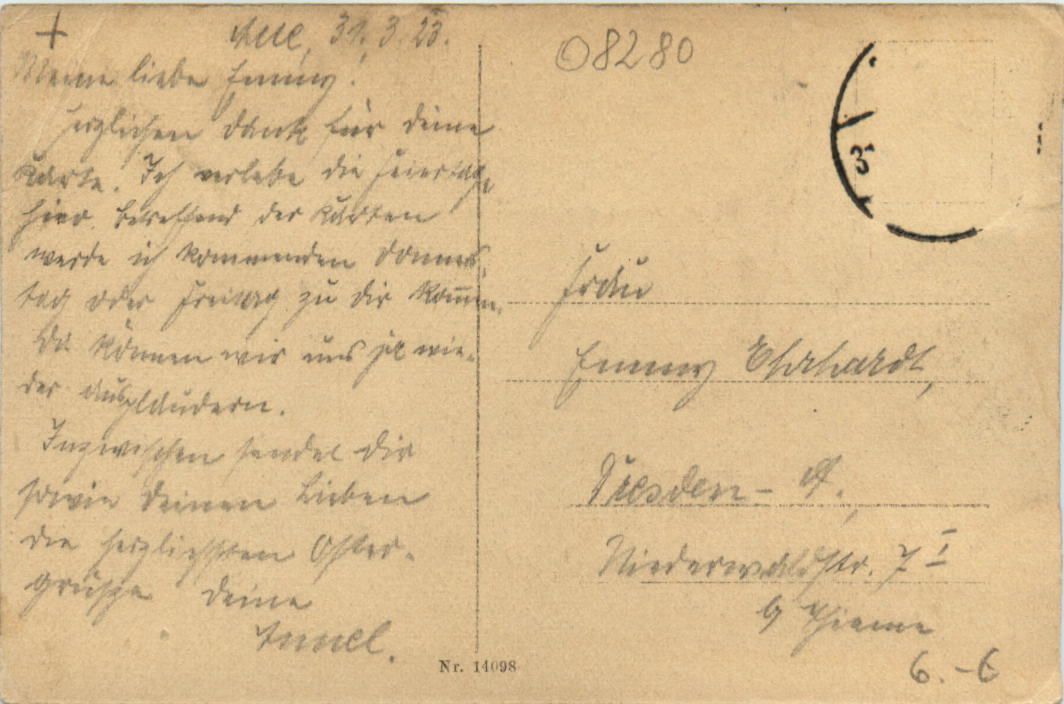 Aue, 31. 3. 23.
Meine liebe Emmy!
Herzlichen Dank für Deine
Karte. Ich verlebe die Feiertage
hier. Betreffend der Karten
werde ich kommenden Donners-
tag oder Freitag zu Dir komm̅en.
Da können wir uns ja wie-
der ausplaudern.
Inzwischen sendet Dir
sowie Deinen Lieben
die herzlichsten Oster-
grüße Deine
Annel.
08280
3
Frau
Emmy Ehrhardt,
Dresden - A.,
Niederwaldstr. 7 I
b Thieme
Nr. 14098
6.-6